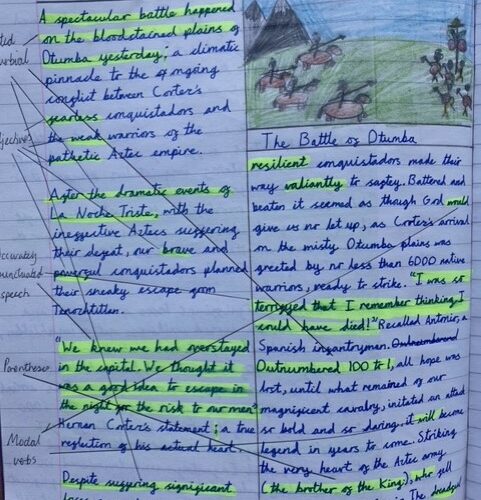 A spectacular battle happened
on the bloodstained plains of
Otumba yesterday; a climatic
pinnacle to the ongoing
conflict between Corter's
fearless conquistadors and
the weak warriors of the
pathetic Aztec empire.
After the dramatic events of
La Noche Triste, with the
ineffective Aztecs suffering
their defeat, our brave and
powerful conquistadors planned
their sneaky escape from
Tenochtitlan.
"We knew we had overstayed
in the capital. We thought it
was a good idea to escape in
the night for the risk to our men"
Hernan Corter's statement; a true
reflection of his actual heart.
Despite suffering significant
The Battle of Otumba
resilient conquistadors made their
way valiantly to safety. Battered and
beaten it seemed as though God would
give us no let up, as Corter's arrival
on the misty Otumba plains was
greeted by no less than 6000 native
warriors, ready to strike. "I was so
terrified that I remember thinking I
could have died!" Recalled Antonio, a
Spanish infantryman. Outnumbered
Outnumbered 100 to 1, all hope was
lost, until what remained of our
magnificent cavalry, initated an attack
so bold and so daring, it will become
legend in years to come. Striking
the very heart of the Aztec army
(the brother of the King), who fell
The
Accurately
punctuated
speech
Parentheses
Modal
verbs